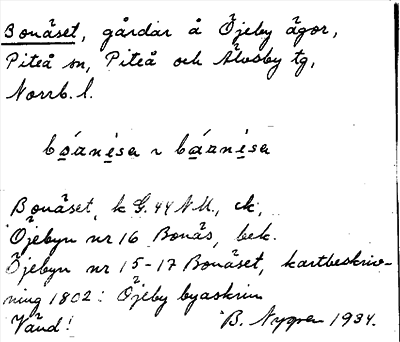 Bonäset, gårdar å Öjeby ägor,
Piteå sn, Piteå och Älvsby tg,
Norrb. l.
bóạznẹsa ~ báạznẹsa
Bonäset, k G. 44 N.U., ck,
Öjebyn nr 16 Bonäs, bek.
Öjebyn nr 15-17 Bonäset, kartbeskriv-
ning 1802: Öjeby byaskrin
Vänd! B. Nygren 1934.